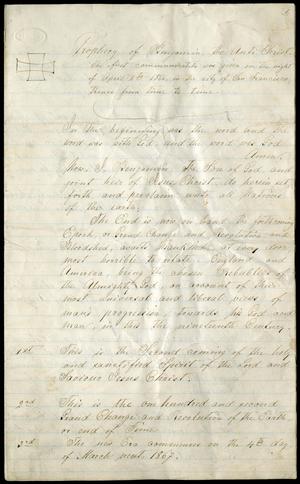 Prophecy of Benjamin, the Anti Christ.
the first communication was given on the night
of April 8th 1862, in the city of San Francisco,
thence from time to time.
In the beginning was the word and the
word was with God, and the word was God
Amen.
Now, I, Benjamin, the Son of God, and
joint heir of Jesus Christ, do herein set
forth, and proclaim unto all Nations
of the earth,
The End is now on hand, the forthcoming
Epoch, or Grand Change and Revolution and
Bloodshed, awaits Mankind, at every door
most horrible to relate, England and
America, being the chosen Vestibules of
the Almighty God, on account of their
most universal and liberal views of
man's progression, towards his God and
man, in this the nineteenth Century.
1st This is the Second coming of the holy
and sanctified Spirit of the Lord and
Saviour Jesus Christ.
2nd This is the one hundred and second
Grand Change and Revolution of the Earth
or end of Time
3rd The new Era commences on the 4th day
of March next, 1867.